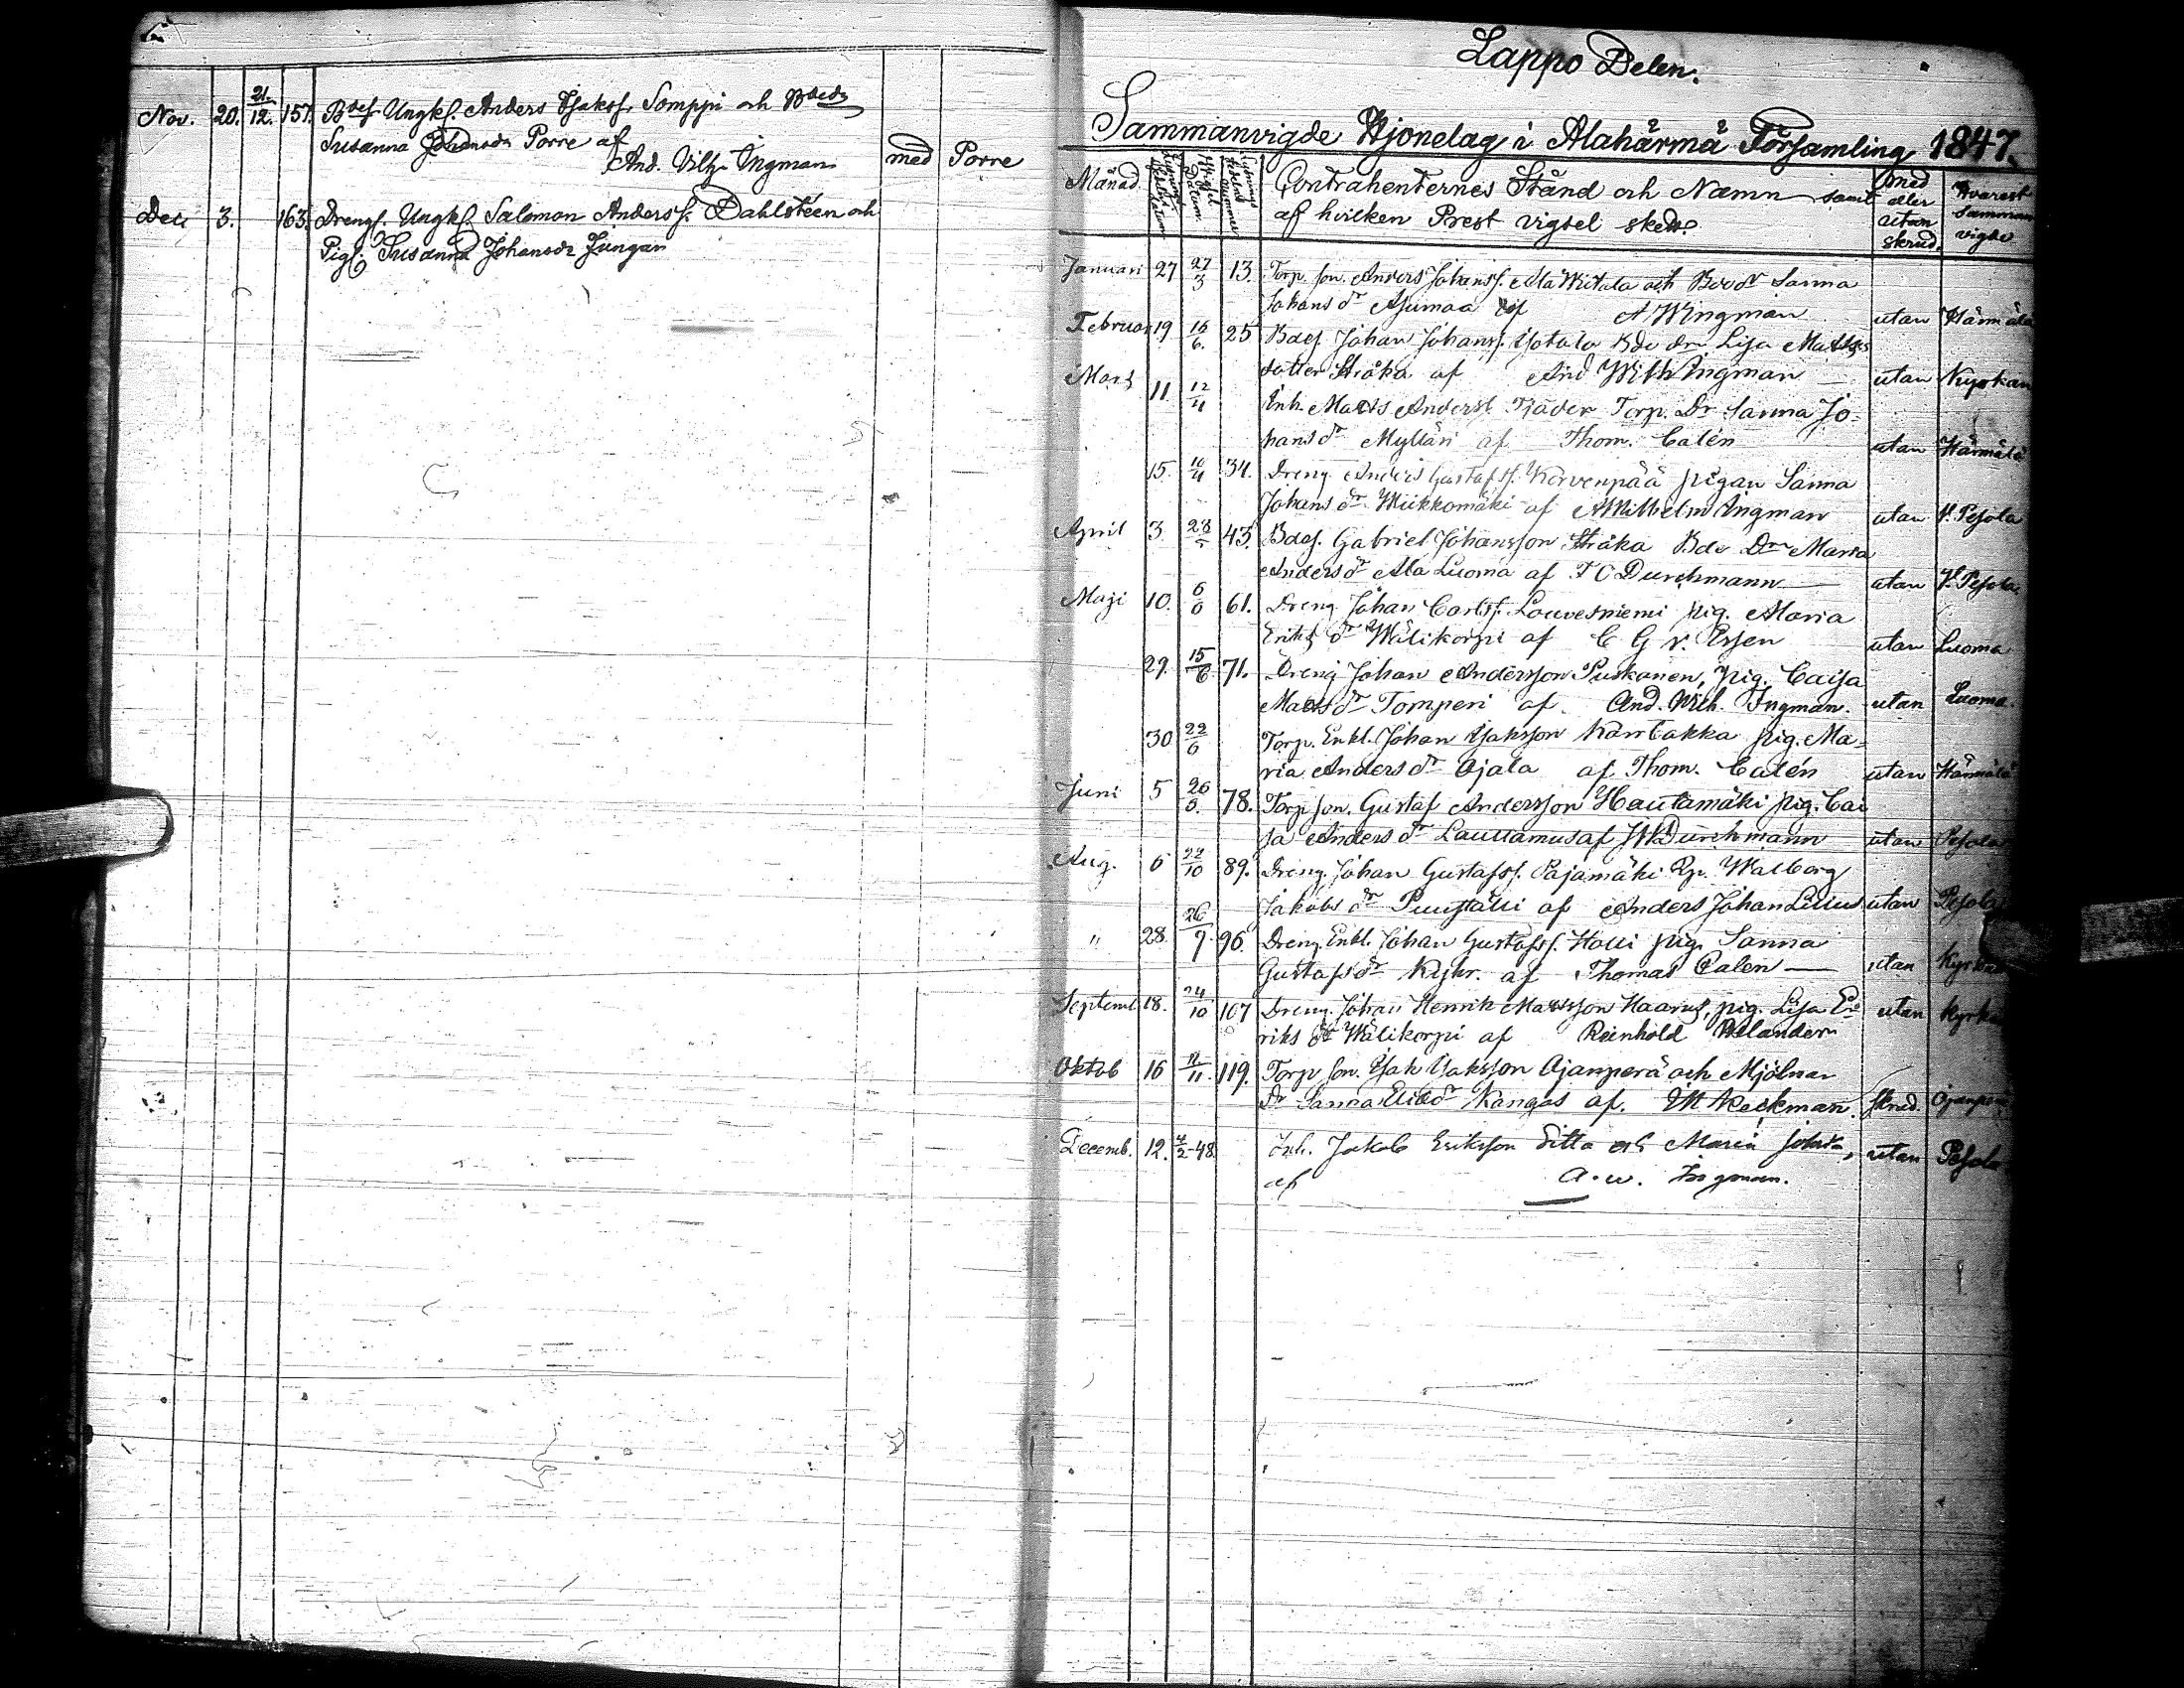 Nov. 20. 21./12. 157. Bdes. Ungk. Anders Isaksf. Somppi och Bdedr
Susanna Johansdr Porre af
And. Vilh. Ingman med Porre
Dec 3. 163. Drengs. Ungk. Salomon Andersf. Dahlstéen och
Pig. Susanna Johansdr Jungar
Lappo Delen.
Sammanvigde Hjonelag i Alahärmä Församling 1847.
Månad. Contrahenternes Stånd och Namn samt med Hvarest
af hvilken Prest vigsel skedt. eller utan skrud. Sammanvigde
Januari 27 27/3 13. Torp. son. Anders Johansf. Ala Witala och Bdedr Sanna
Johans dr Ajumaa af A W Ingman utan Härmälä
Februari 19 16/6. 25 Bdes. Johan Johansf. Yotala Bde dr Lisa Matts
dotter Sträka af And Wilh Ingman utan Kyrkan
Mars 11 12/4 Enh. Matts Andersf. Tjäder Torp. Dr Sanna Jo=
hans dr Mylläri af Thom. Calén utan Härmälä
15. 10/4 34. Dreng Anders Gustafsf. Korvenpää pigan Sanna
Johans dr Wiikkomäki af A Wilhelm Ingman utan Y. Pesola
April 3. 28/5 43. Bdes. Gabriel Johansson Sträka Bde Dr Maria
Anders dr Ala Luoma af F O Durchmann utan Y. Pesola
Maji 10. 6/6 61. Dreng Johan Carlsf. Louvesniemi pig. Maria
Eriks dr Wälikorpi af C G v. Essen utan Luoma
29. 15/6. 71. Dreng Johan Andersson Puskanen, pig. Caisa
Matts dr Tomperi af And. Wilh. Ingman. utan Luoma
30 22/6 Torp. Enkl. Johan Isaksson Kantakka pig. Ma=
ria Anders dr Ojala af Thom. Calén utan Härmälä
Juni 5 26/5. 78. Torp son. Gustaf Andersson Hautamäki pig. Cai
sa Anders dr Lauttamus af Durchmann utan Pesola
Aug. 6 22/10 89. Dreng. Johan Gustafsf. Pajamäki Walborg
Jakobs dr af Anders Johan Lilius utan Pesola
" 28. 26/9. 96. Dreng. Enkl. Johan Gustafsf. Holli pig. Sanna
Gustafs dr Kykr. af Thomas Calen utan Kyrkan
Septemb 18. 24/10 107 Dreng. Johan Henrik Mattsson Haarus, pig. Lisa E=
riks dr Wälikorpi af Reinhold Helander utan Kyrkan
Oktob 16 11/11. 119. Torp son. Isak Isaksson Ojanperä och Mjölnar
dr Sanna Elias dr Kangas af. Keckman. skrud. Ojanperä
Decemb. 12. 4/2-48. Inh. Jakob Eriksson Ditto och Maria Johs dr,
af A. W. Ingman. utan Pesola